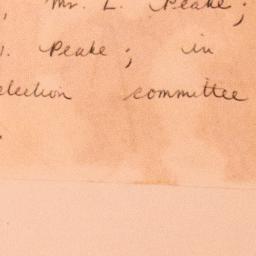 , Mr. L. Peake;
. Peake; in
election committee
.